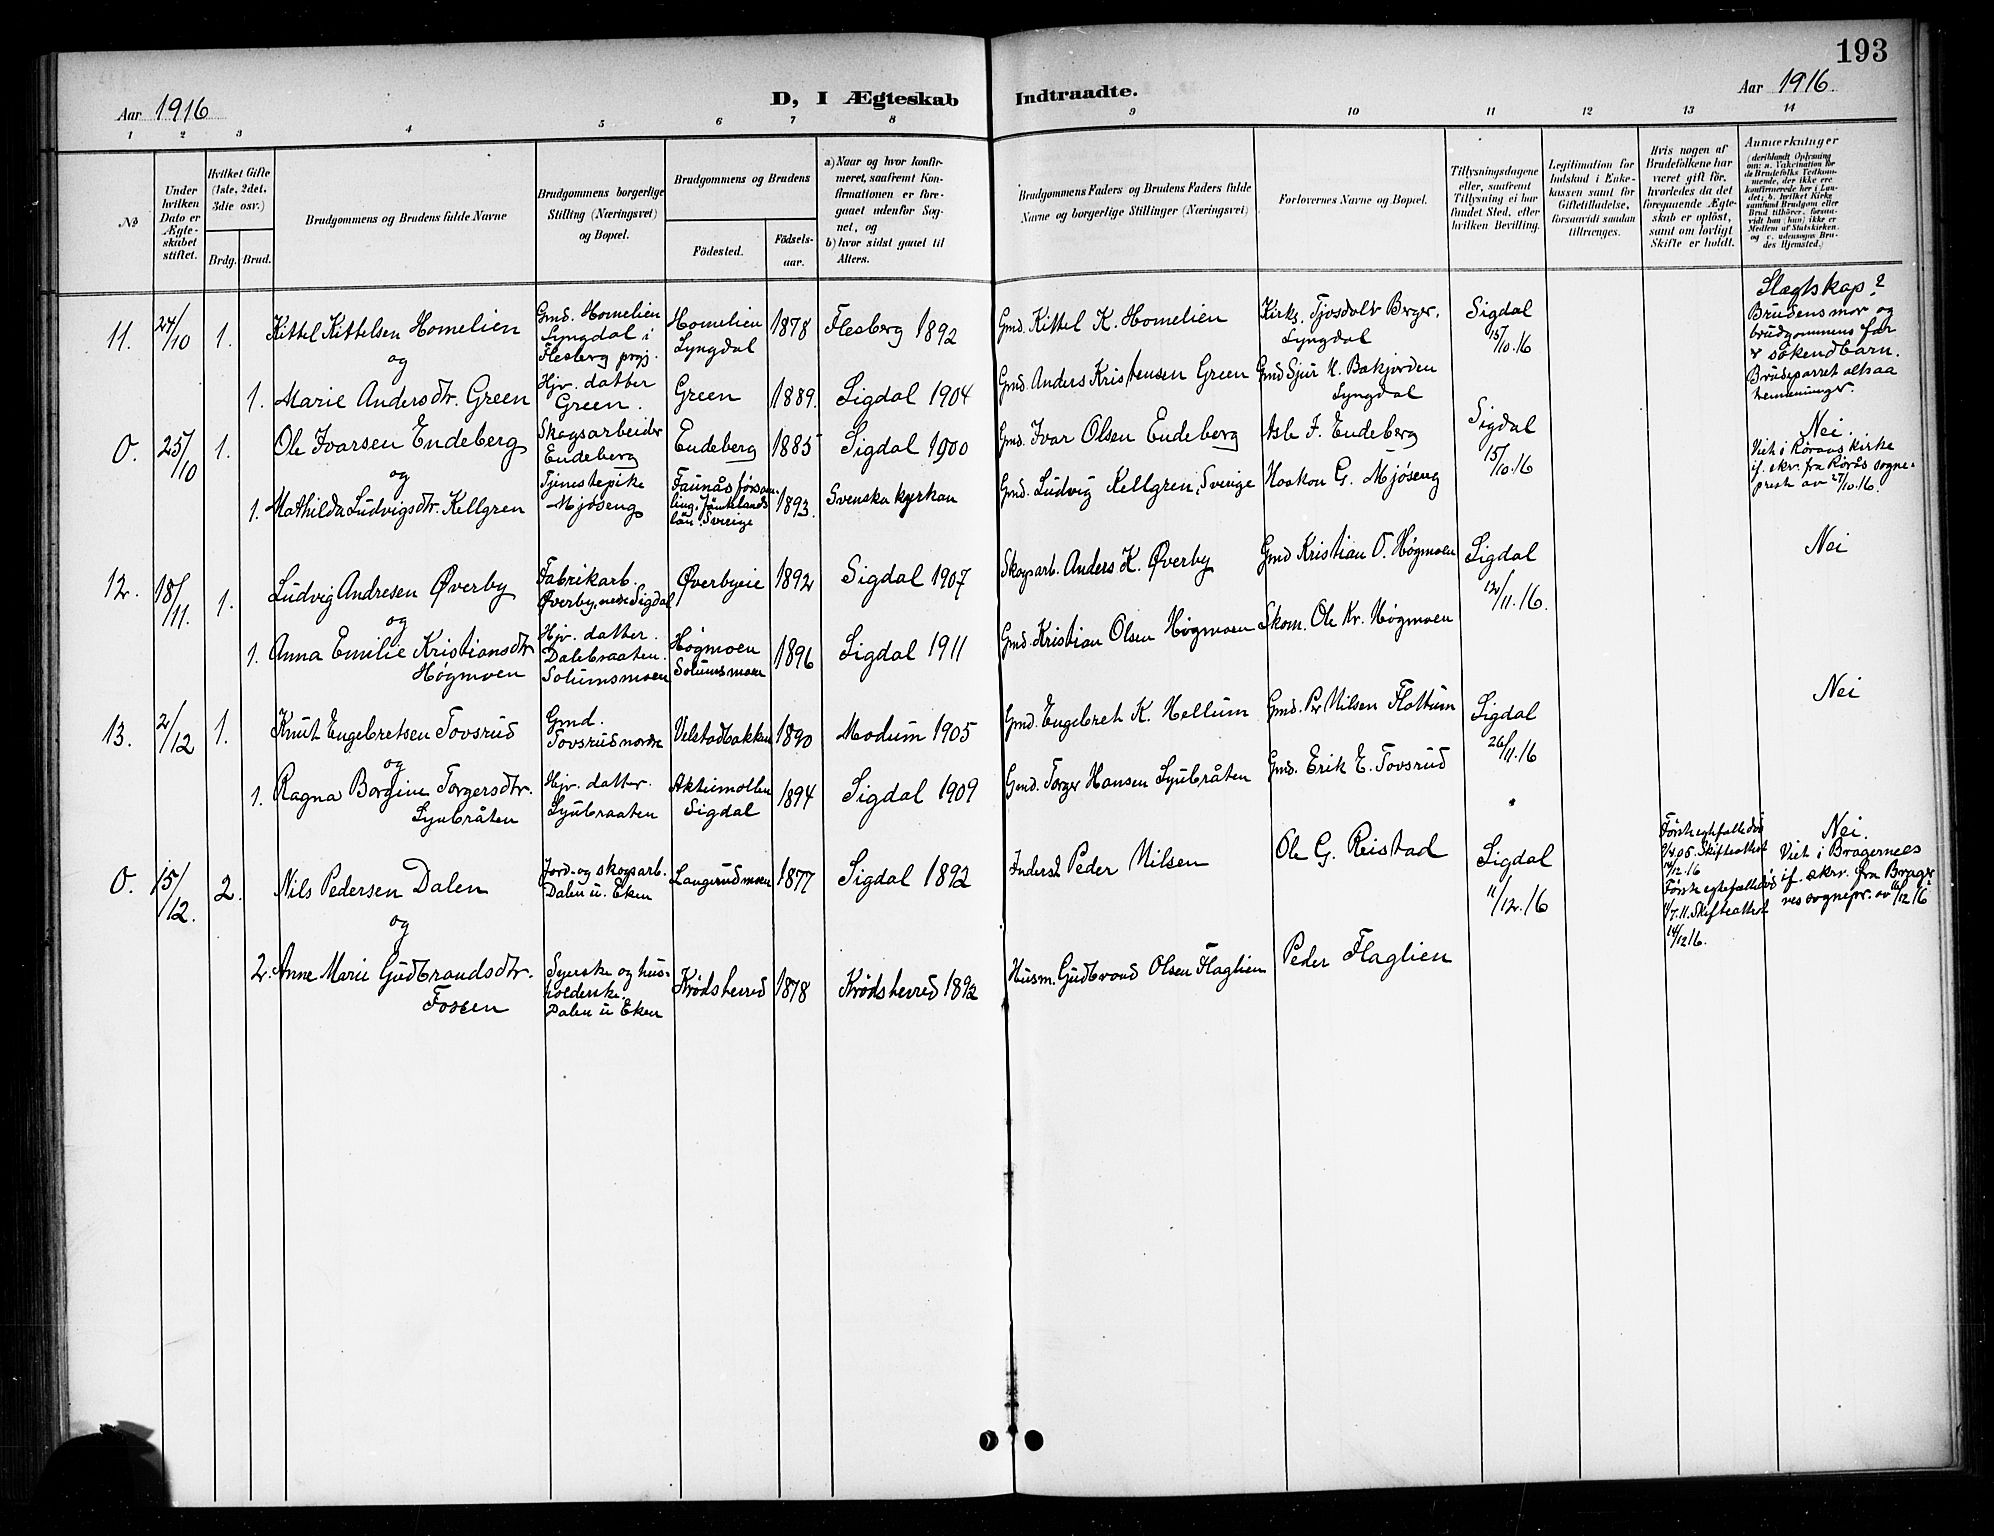 193
Aar 1916
D, I Ægteskab
Indtraadte.
Aar 1916
1 2 3 4 5 6 7 8 9 10 11 12 13 14
№
Under
hvilken
Dato er
Ægte-
skabet
stiftet.
Hvilket Gifte
(1ste, 2det,
3die osv.)
Brdg. Brud.
Brudgommens og Brudens fulde Navne
Brudgommens borgerlige
Stilling (Næringsvei)
og Bopæl.
Brudgommens og Brudens
Födested.
Födsels-
aar.
a) Naar og hvor konfir-
meret, saafremt Kon-
firmationen er fore-
gaaet udenfor Sog-
net, og
b) hvor sidst gaaet til
Alters.
Brudgommens Faders og Brudens Faders fulde
Navne og borgerlige Stillinger (Næringsvei)
Forlovernes Navne og Bopæl.
Tillysningsdagene
eller, saafremt
Tillysning ei har
fundet Sted, efter
hvilken Bevilling.
Legitimation for
Indskud i Enke-
kassen samt for
Giftetilladelse,
forsaavidt saadan
tiltrænges.
Hvis nogen af
Brudefolkene har
været gift för,
hvorledes da det
foregaaende Ægte-
skab er oplöst,
samt om lovligt
Skifte er holdt.
Anmærkninger
(deriblandt Oplysning
om: a. Vakcination for
de Brudefolks Vedkom-
mende, der ikke ere
konfirmerede her i Lan-
det; b. hvilket Kirke-
samfund Brudgom eller
Brud tilhörer, forsaa-
vidt han (hun) ikke er
Medlem af Statskirken,
og c. udensogns Bru-
des Hjemsted.)
11. 24/10 1.
Kittel Kittelsen Homelien
og
Gmd. Homelien
Lyngdal i
Flesberg prgj.
Homelien
Lyngdal
1878
Flesberg 1892
Gmd. Kittel K. Homelien
Kirks. Tjosdolv Berger,
Lyngdal
Sigdal
15/10.16
Slegtskap?
Brudens mor og
brudgommens far
er søkendbarn.
Brudeparret altsaa
tremenninger.
1. Marie Andersdtr. Green
Hjv. datter
Green.
Green
1889.
Sigdal 1904
Gmd. Anders Kristensen Green
Gmd Sjur H. Bakjorden
Lyngdal
0. 25/10 1.
Ole Ivarsen Endeberg
og
Skogsarbeider
Endeberg
Endeberg
1885
Sigdal 1900
Gmd. Ivar Olsen Endeberg
Asle I. Endeberg
Sigdal
15/10.16
Nei.
Viet i Røraas kirke
if. skr. fra Røros sogne-
prest av 27/10.16.
1. Mathilda Ludvigsdtr. Kellgren
Tjenestepike
Mjøseng
Faunås försam-
ling, Jämtlands
län. Sverige
1893.
Svenska kyrkan
Gmd. Ludvig Kellgren, Sverige
Haakon G. Mjøseng
12. 18/11. 1.
Ludvig Andresen Øverby
og
Fabrikarb.
Øverby, nere Sigdal
Øverbyeie
1892
Sigdal 1907
Skogsarb. Anders K. Øverby
Gmd Kristian O. Høgmoen
Sigdal
12/11.16.
Nei
1. Anna Emilie Kristiansdtr
Høgmoen
Hjv. datter.
Dalebraaten.
Solumsmoen
Høgmoen
Solumsmoen
1896
Sigdal 1911
Gmd. Kristian Olsen Høgmoen
Skom. Ole Kr. Høgmoen
13. 2/12 1.
Knut Engebretsen Tovsrud
og
Gmd.
Tovsrud nordre
Velstadbakken
1890
Modum 1905
Gmd. Engebret K. Hellum
Gmd. Per Nilsen Flattum
Sigdal
26/11.16
Nei
1. Ragna Borgine Torgersdtr.
Lyubråten
Hjv. datter.
Lyubraaten
Aktiemøllen
Sigdal
1894
Sigdal 1909
Gmd. Torger Hansen Lyubråten
Gmd. Erik E. Tovsrud
0. 15/12. 2.
Nils Pedersen Dalen
og
Jord- og skogsarb.
Dalen u. Eken
Langerudmoen
1877
Sigdal 1892
Inderst Peder Nilsen
Ole G. Reistad
Sigdal
11/12.16
Første egtefælle død
Skifteattest
14/12.16
Første egtefælle død
Skifteattest
14/12 16.
Nei.
Viet i Bragernes
if. skr. fra Brager-
nes sognepr. av 16/12 16
2. Anne Marie Gudbrandsdtr.
Fossen
Syerske og hus-
holderske.
Dalen u. Eken
Krødsherred
1878
Krødsherred 1892
Husm. Gudbrand Olsen Flaglien
Peder Flaglien